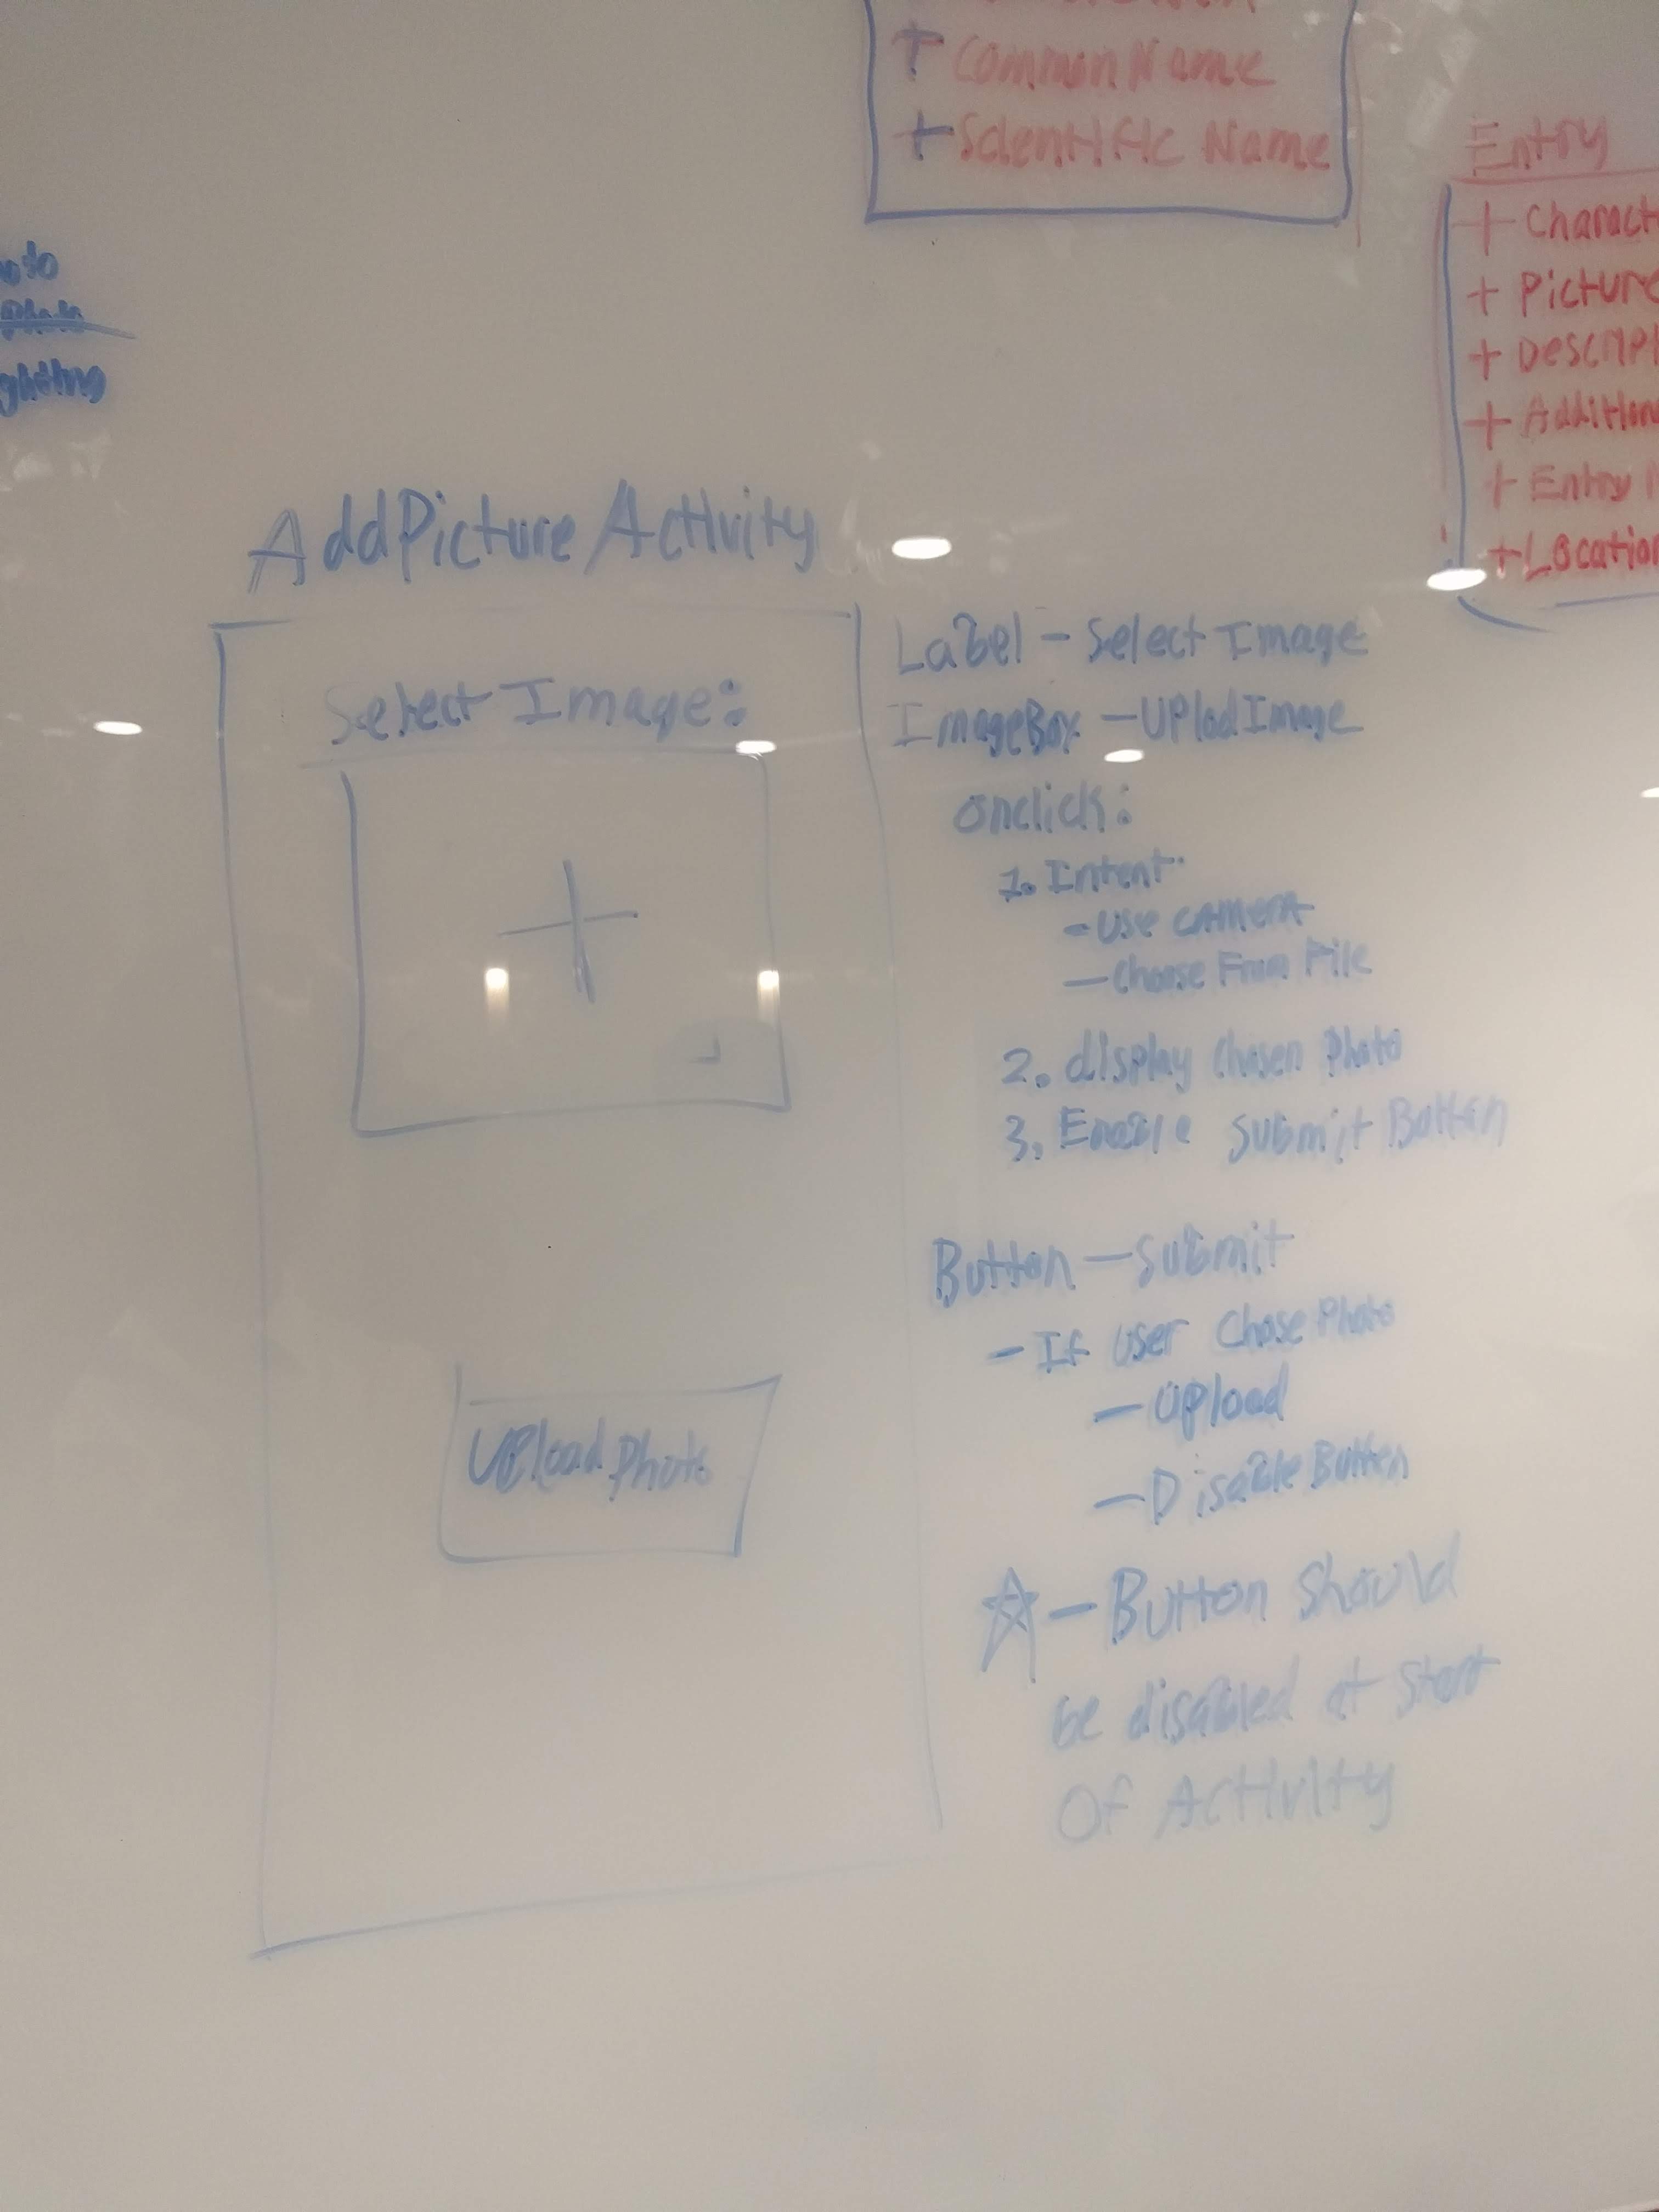 + Common Name
+ Scientific Name
Entry
+ Charact
+ Picture
+ Descript
+ Addition
+ Entry
+ Location
oto
ghting
AddPictureActivity
Select Image:
Upload Photo
Label - Select Image
ImageBox - UPlodImage
onclick:
1. Intent
- Use CAMERA
- Choose From File
2. display chosen photo
3. Enable Submit Button
Button - Submit
- If User Chose Photo
- Upload
- Disable Button
☆ - Button Should
be disabled at start
Of Activity